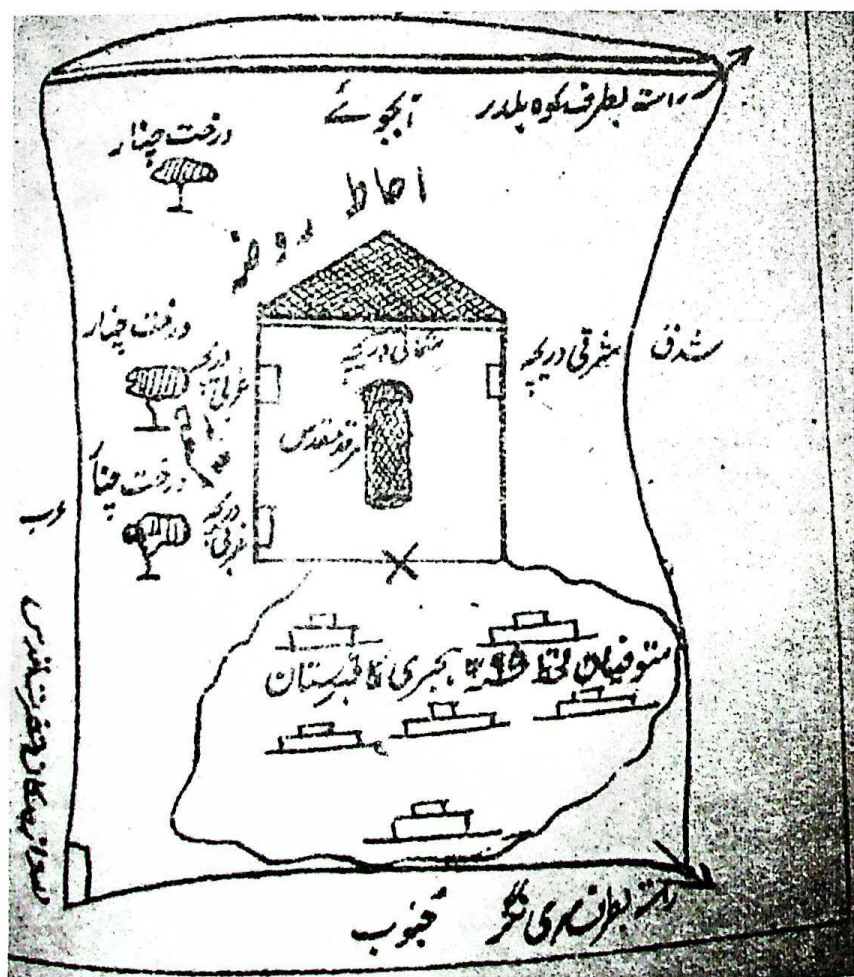 راستہ بطرف کوہ پلدر
آبجوئے
درخت چنار
احاطہ روضہ
درخت چنار
دریچہ غربی
شمالی دریچہ
مشرقی دریچہ
مرقد مقدس
درخت چنار
دریچہ غربی
متوفیان قحط ہجری کا قبرستان
راستہ بطرف سری نگر
جنوب